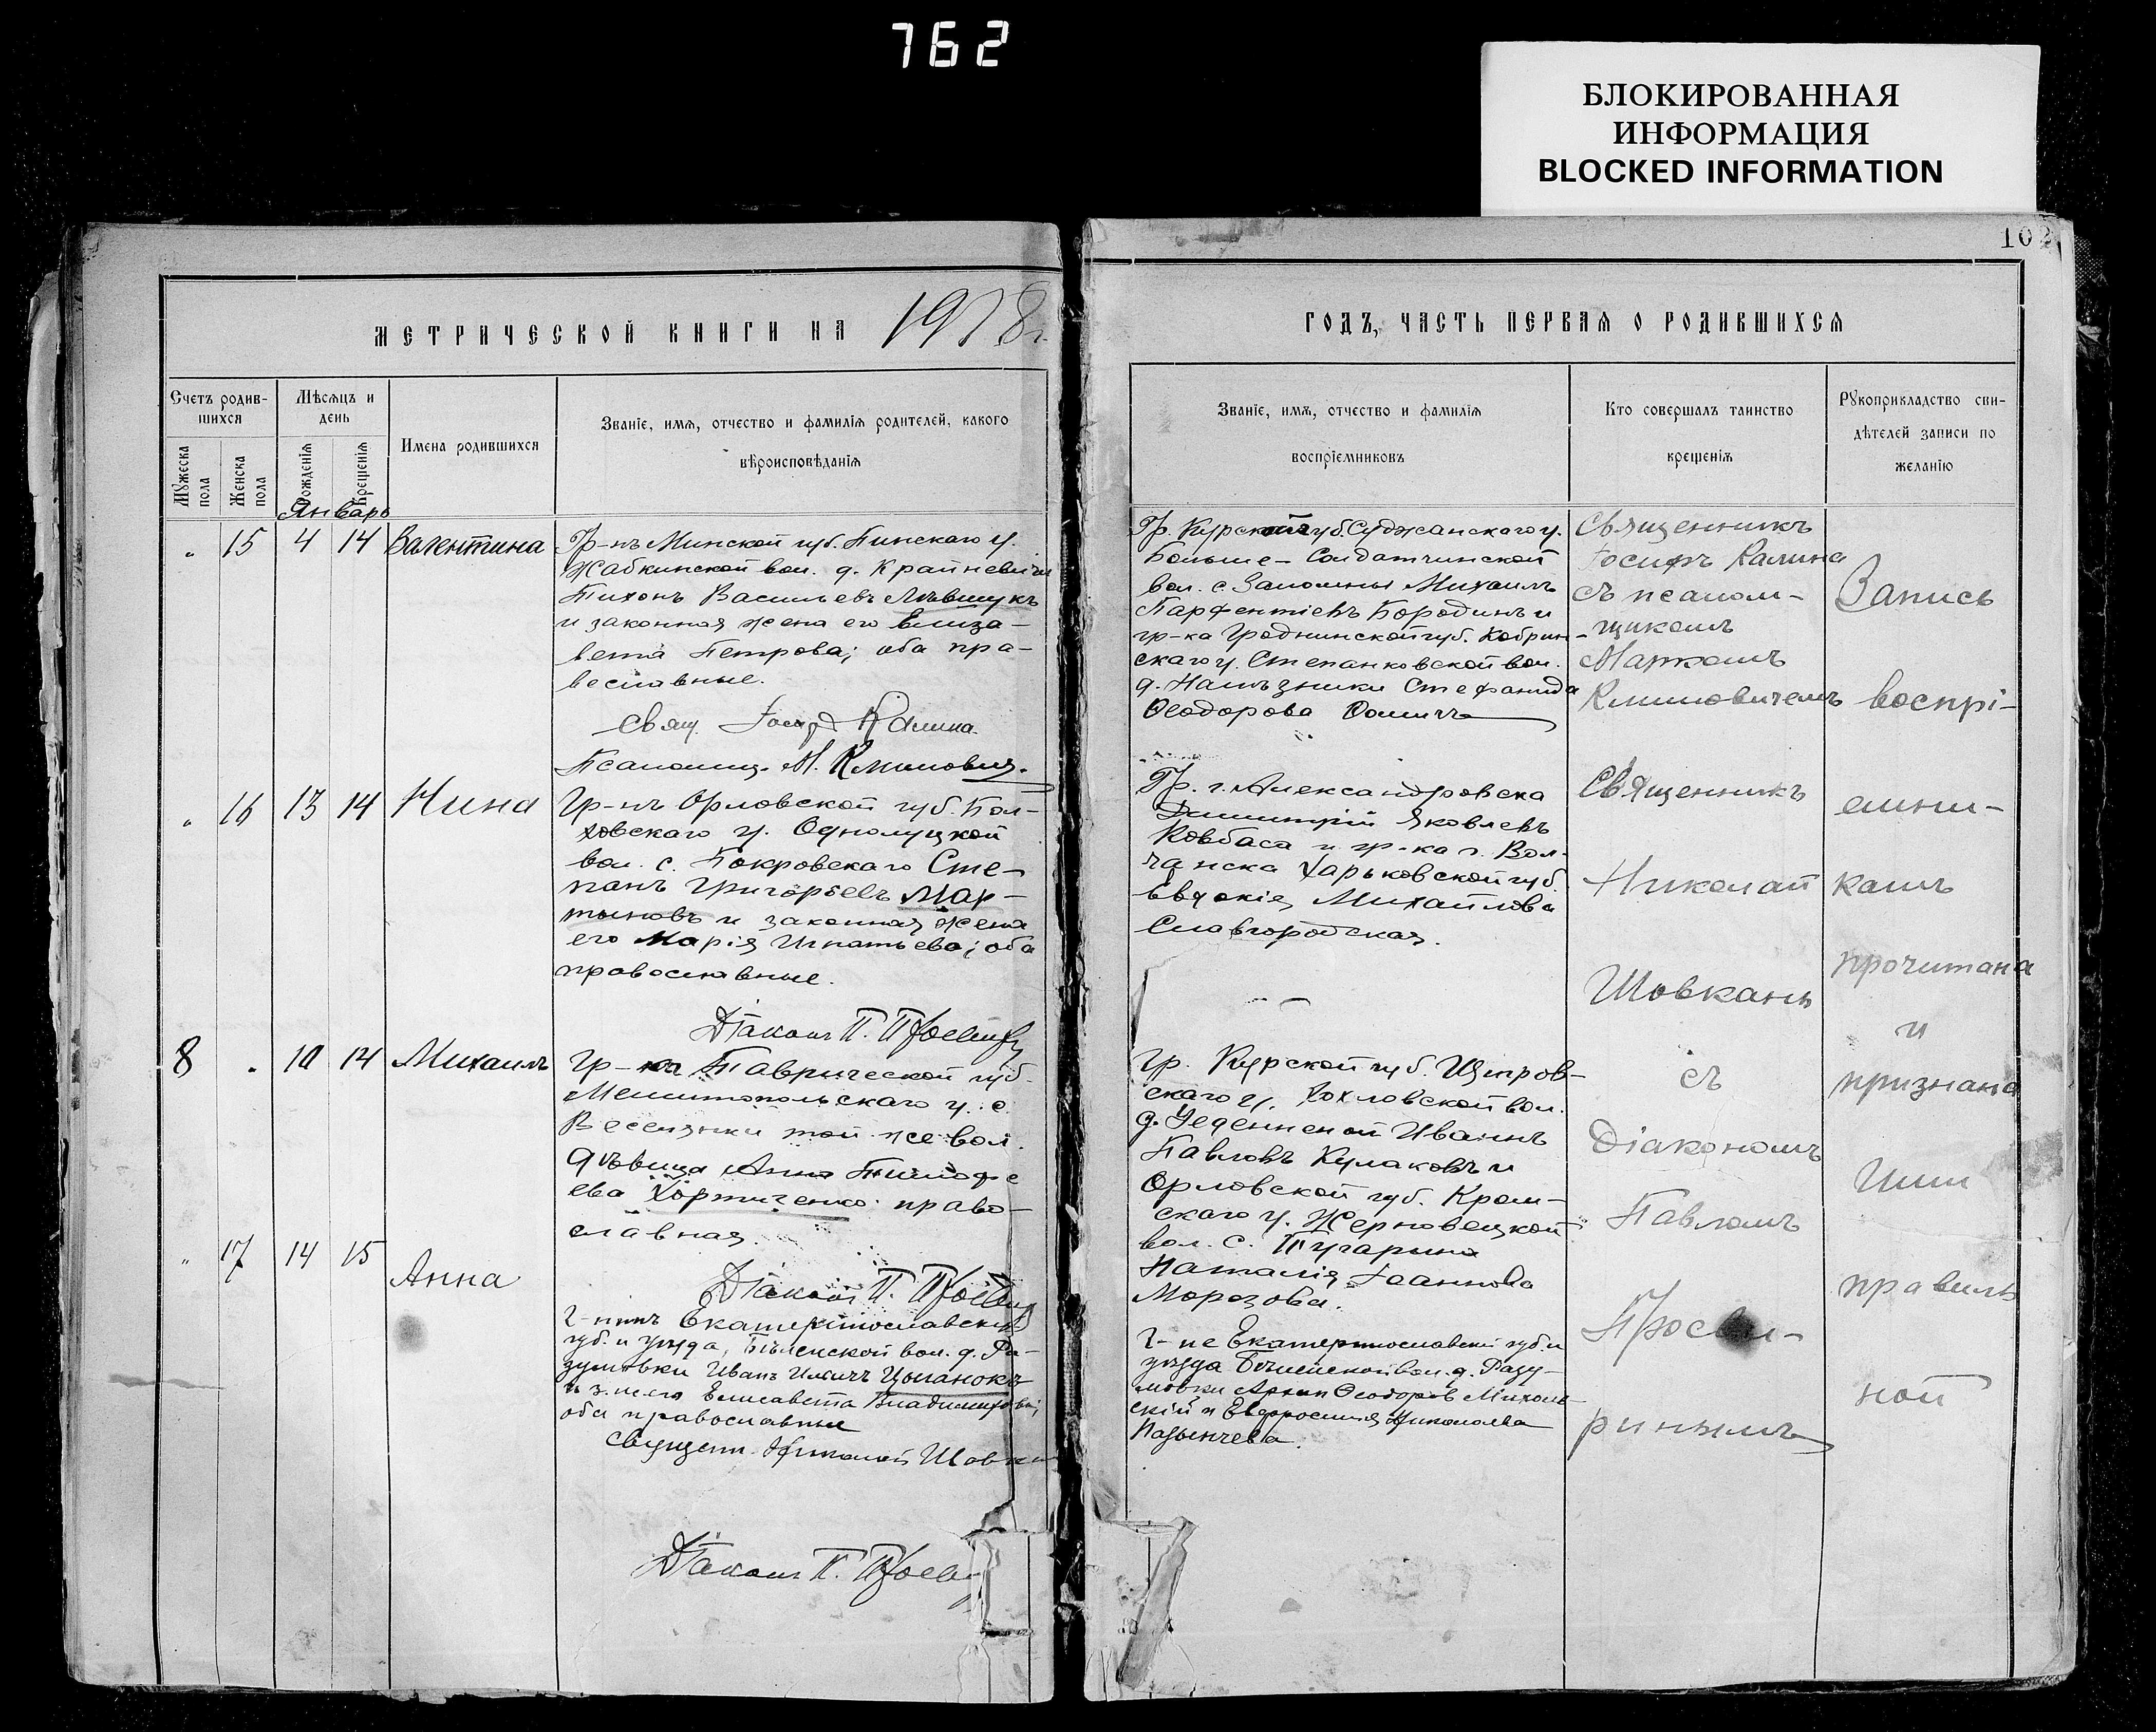 762
БЛОКИРОВАННАЯ
ИНФОРМАЦИЯ
BLOCKED INFORMATION
102
МЕТРИЧЕСКОЙ КНИГИ НА 1918 г.
ГОДЪ, ЧАСТЬ ПЕРВАЯ О РОДИВШИХСЯ
Счетъ родив-
шихся
Мужеска
пола
Женска
пола
Мѣсяцъ и
день
Рожденія
Крещенія
Имена родившихся
Званіе, имя, отчество и фамилія родителей, какого
вѣроисповѣданія
Званіе, имя, отчество и фамилія
воспріемниковъ
Кто совершалъ таинство
крещенія
Рукоприкладство сви-
дѣтелей записи по
желанію
Январь
" 15 4 14 Валентина
Гр-нъ Минской губ. Пинскаго у.
Жабкинской вол. д. Крайневичи
Тихонъ Васильевъ Лѣвшукъ
и законная жена его Елиза-
вета Петрова; оба пра-
вославные.
Свящ. Іосифъ Калина
Псаломщ. М. Климовичъ.
Гр. Курской губ. Суджанскаго у.
Больше-Солдатчинской
вол. с. Заломны Михаилъ
Парфентіевъ Бородинъ и
гр-ка Гродненской губ. Кобрин-
скаго у. Степанковской вол.
д. Стефанида
Ѳеодорова
Священникъ
Іосифъ Калина
съ псалом-
щикомъ
Маркомъ
Климовичемъ
" 16 13 14 Нина
Гр-нъ Орловской губ. Бол-
ховскаго у. Однолуцкой
вол. с. Покровскаго Сте-
панъ Григорьевъ Мар-
тыновъ и законная жена
его Марія Игнатьева; оба
православные.
Діаконъ П.
Гр. г. Александровска
Димитрій Яковлевъ
Ковбаса и гр-ка г. Вол-
чанска Харьковской губ.
Евдокія Михайлова
Славгородская.
Священникъ
Николай
Шовкань
съ
Діакономъ
Павломъ
ринымъ
8 " 10 14 Михаилъ
Гр-ка Таврической губ.
Мелитопольскаго у. с.
Веселянки той же вол.
дѣвица Анна Тимофе
ева Хортиченко православ-
славная.
Діаконъ П.
Гр. Курской губ. Щигров-
скаго у. Хохловской вол.
д. Уеденненой Иванъ
Павловъ Кулаковъ и
Орловской губ. Кром-
скаго у. Жерновецкой
вол. с. Тугарина
Наталія Іоаннова
Морозова.
" 17 14 15 Анна
Г-нинъ Екатеринославской
губ. и уѣзда, Бѣленской вол. д. Ра-
зумовки Иванъ Ильичъ Цыганокъ
и з. ж. его Елисавета Владимірова;
оба православные
Священ. Николай Шовкань
Діаконъ П.
Г-не Екатеринославской губ. и
уѣзда Бѣленской вол. д. Разу-
мовки Ѳеодоровъ
и Евфросинія Николаева
Запись
воспрі-
емни-
камъ
прочитана
и
признана
Ими
правиль
ной